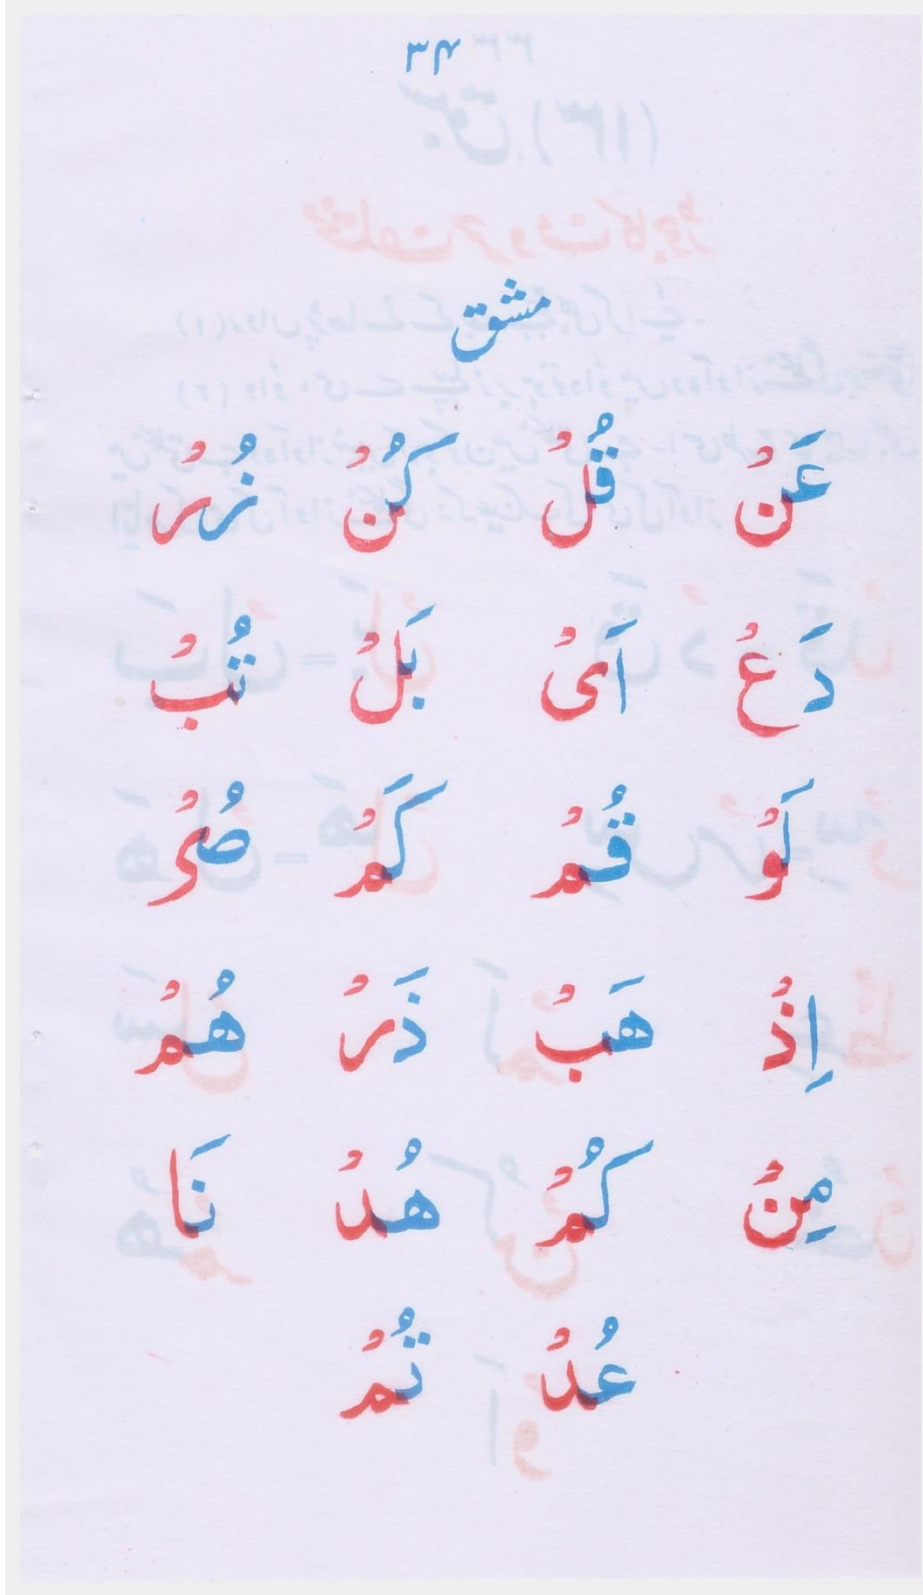 ۳۴
مشق
عَنْ قُلْ كُنْ زُرْ
دَعْ اَىْ بَلْ تُبْ
لَوْ قُمْ كَمْ
اِذْ هَبْ ذَرْ هُمْ
مِنْ كُمْ هُدْ نَا
عُدْ ثُمْ